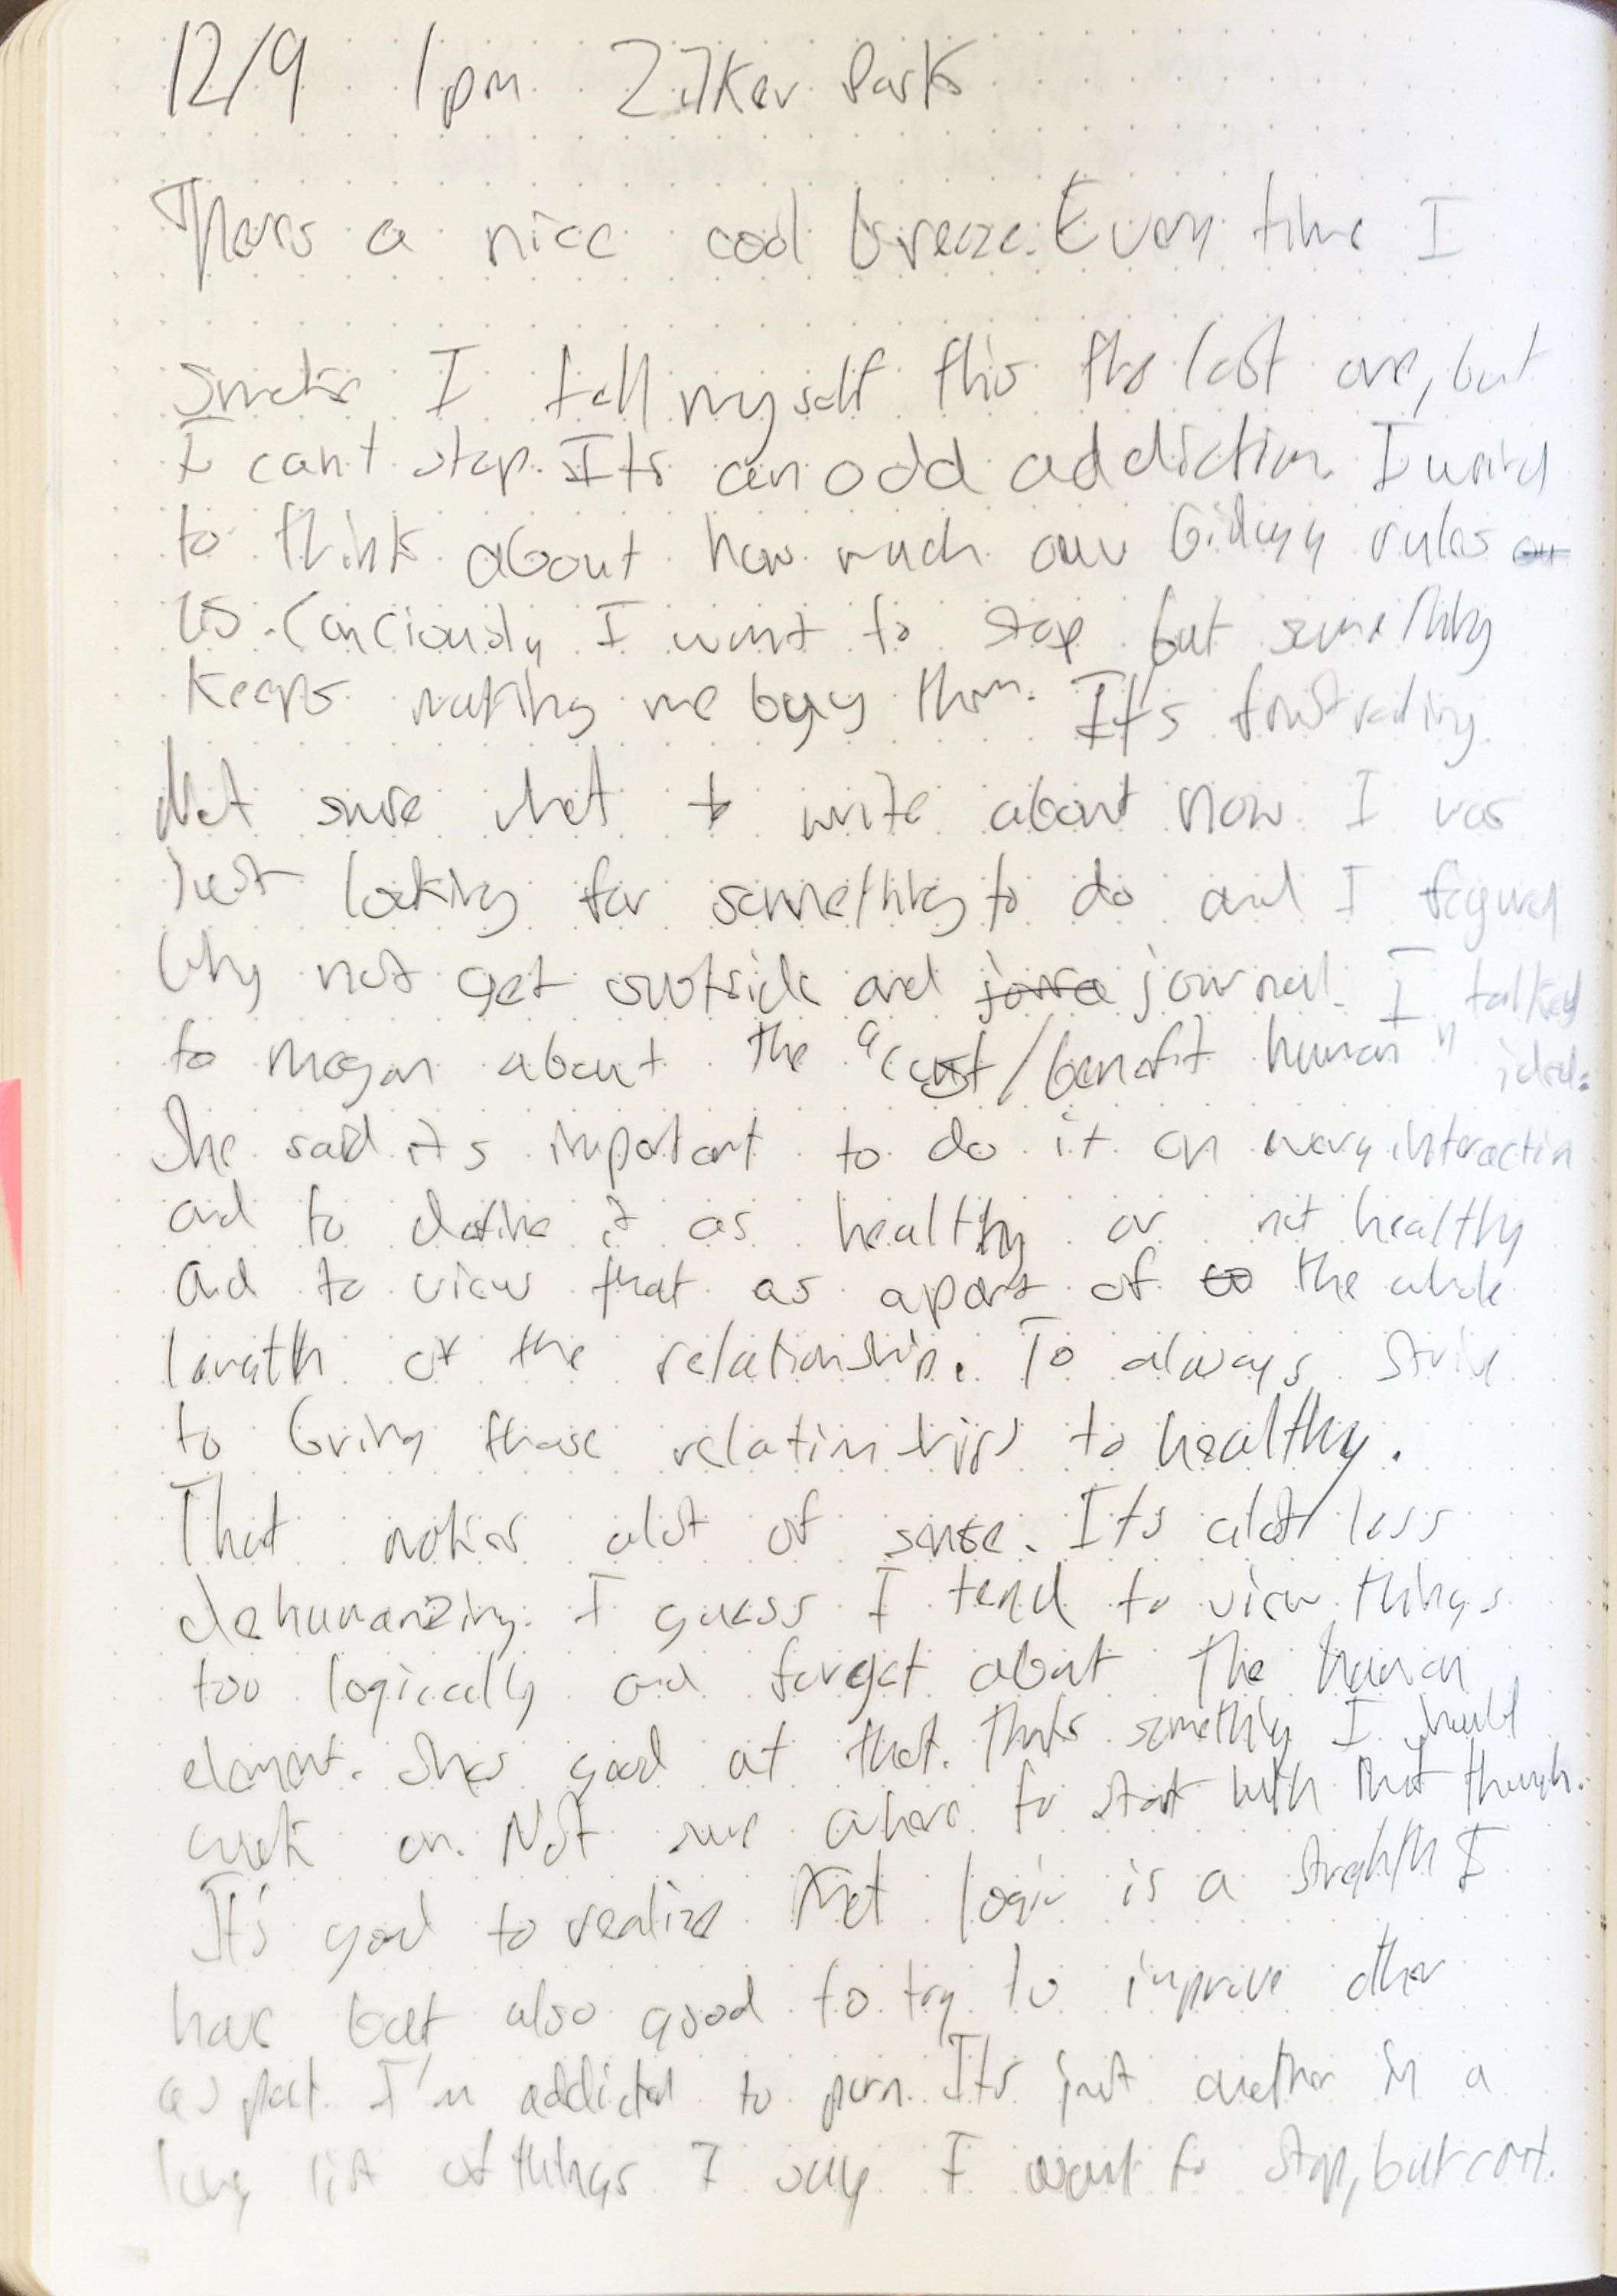 12/9 1pm Zilker Park
Theres a nice cool breeze. Every time I
smoke I tell myself this the last one, but
I cant stop. Its an odd addiction. I
to think about how much our biology rules
us. Conciously I want to stop but something
keeps making me buy them. It's frustrating.
Not sure what to write about now. I was
just looking for something to do and I figured
why not get outside and journal. I talked
to megan about the "cost/benefit human" idea.
She said its important to do it on every interaction
and to define it as healthy or not healthy
and to view that as apart of the whole
length of the relationship. To always strive
to bring those relationships to healthy.
That makes alot of sense. Its alot less
dehumanizing. I guess I tend to view things
too logically and forget about the human
element. Shes good at that. Thats something I should
work on. Not sure where to start with that though.
It's good to realize that logic is a strength I
have but also good to try to improve other
aspect. I'm addicted to porn. Its just another in a
long list of things I say I want to stop, but cant.